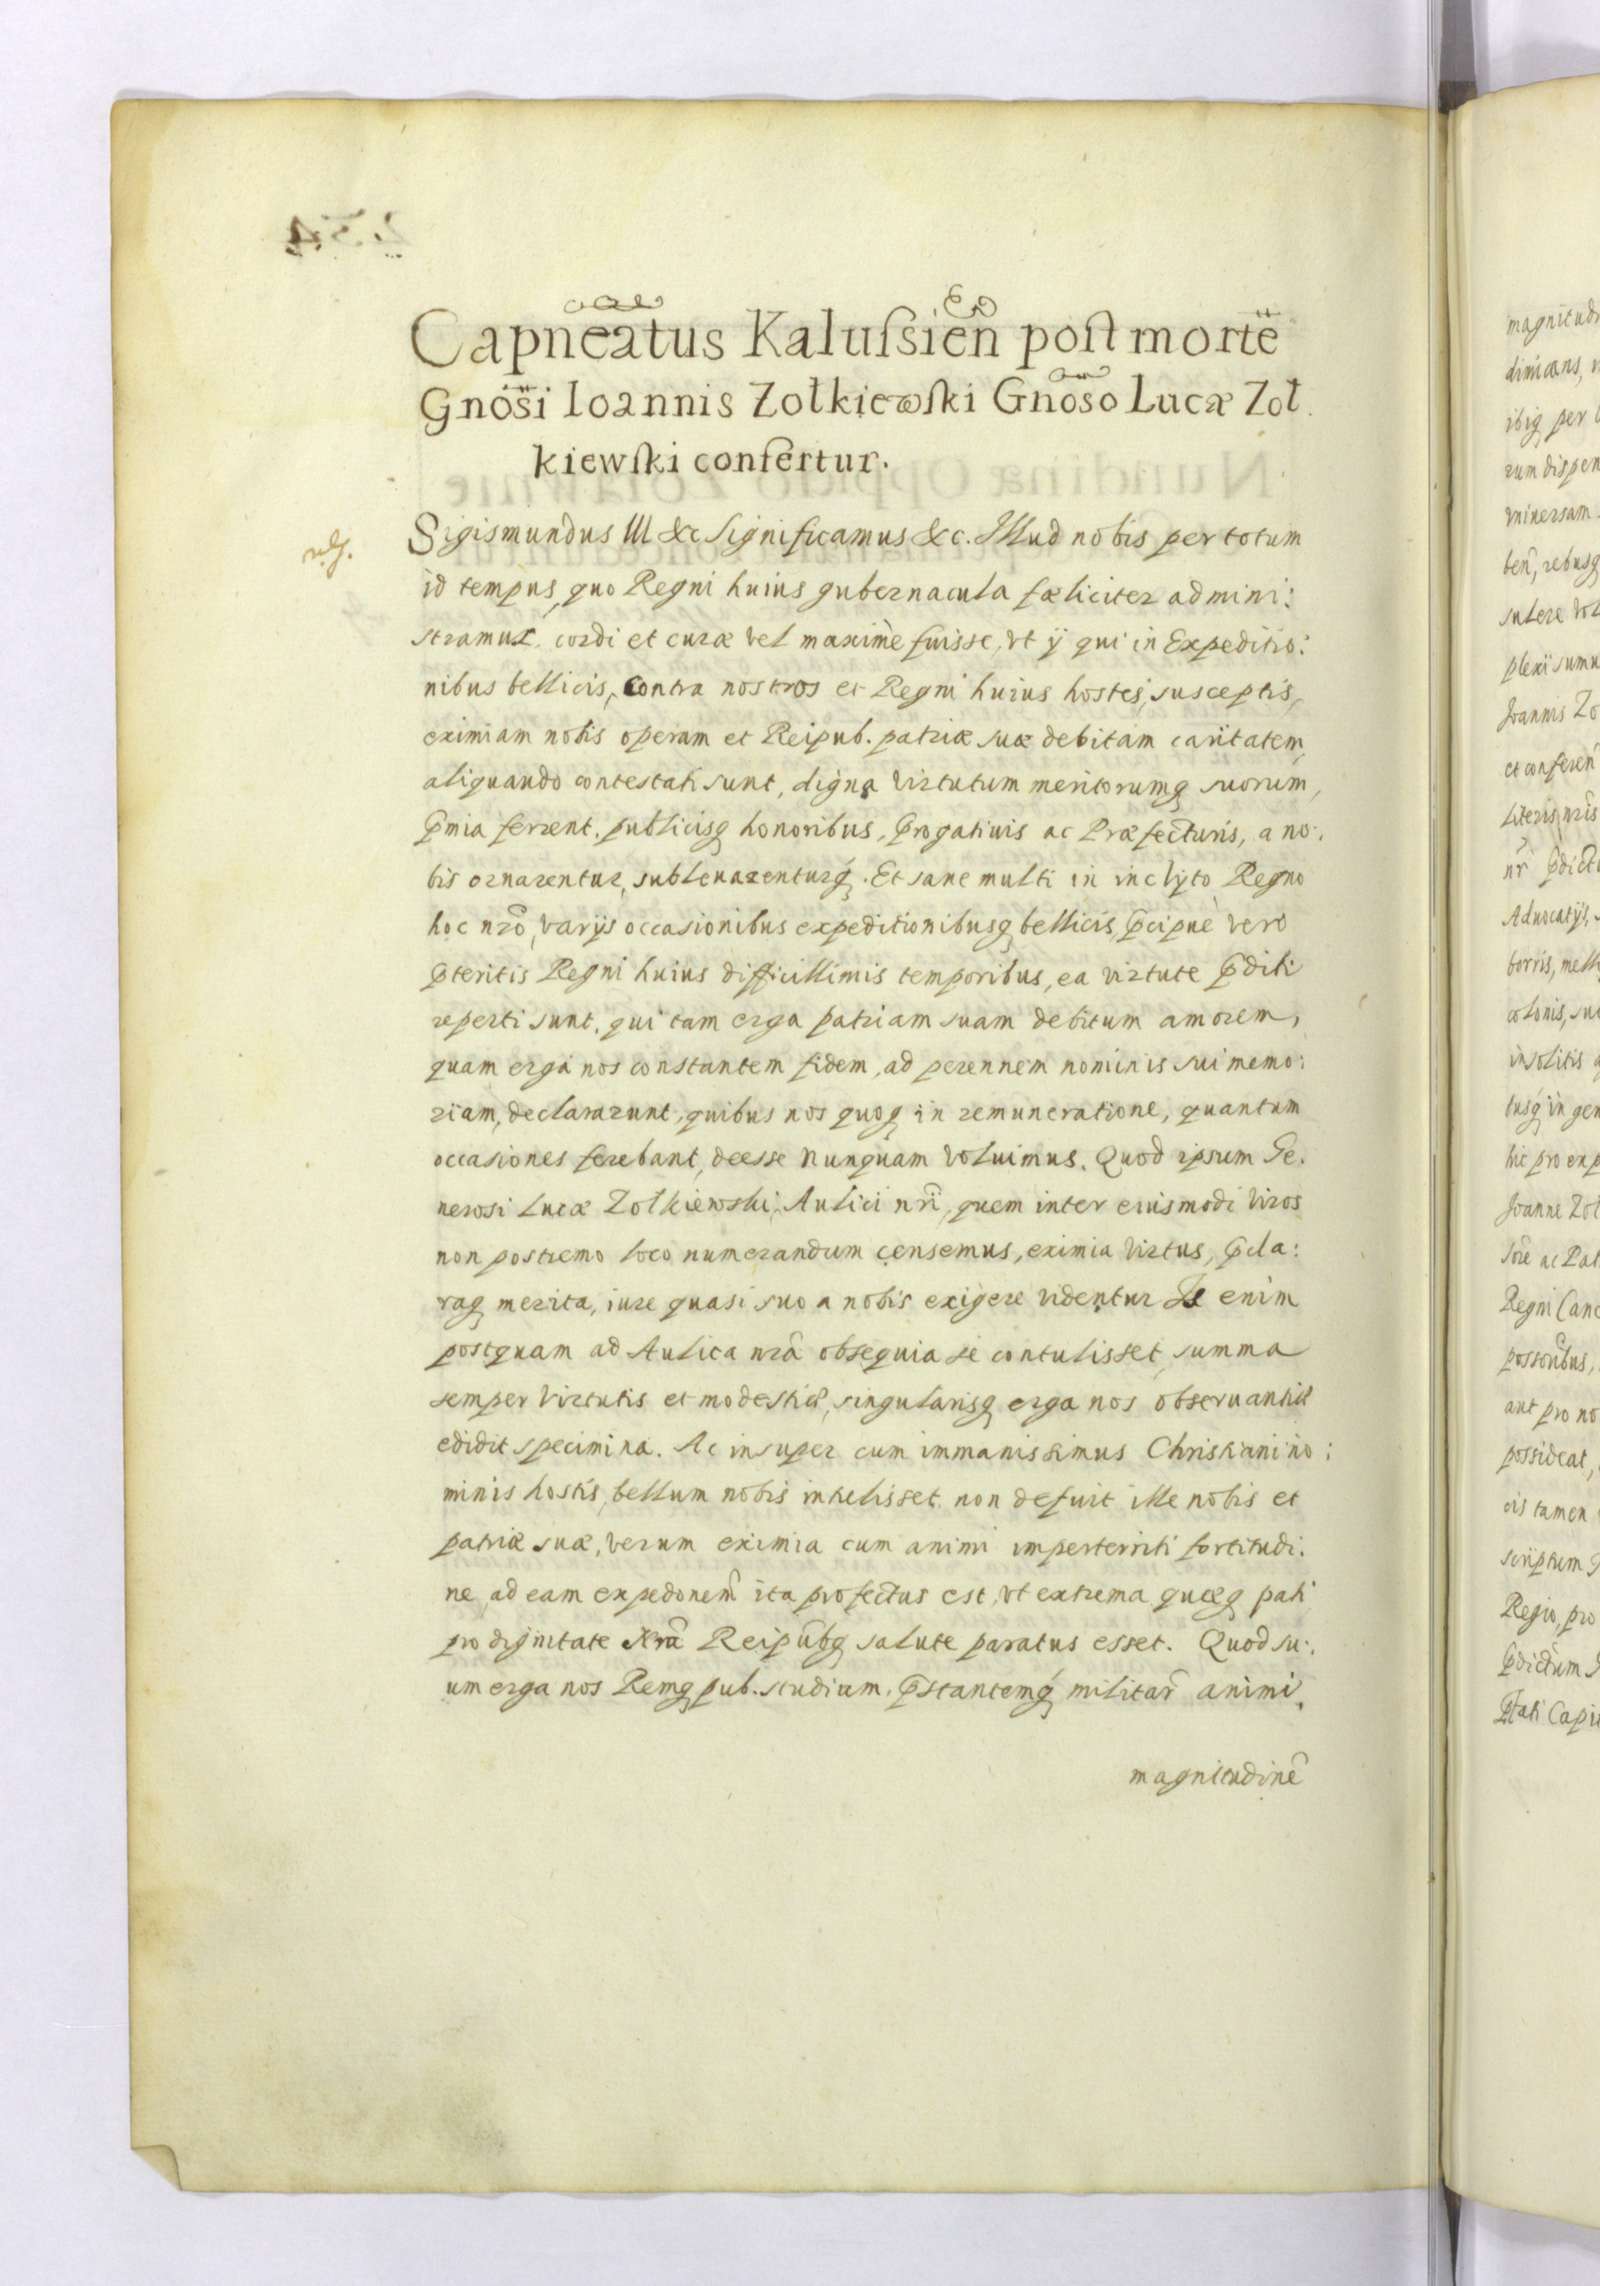 Capneatus Kalussień post mortē
Gnosi Ioannis Zołkiewski Gnoso Lucæ Zoł
kiewski confertur.
Sigismundus III &c Significamus &c. Illud nobis per totum
id tempus, quo Regni huius gubernacula fæliciter admini:
stramus, cordi et curæ vel maxime fuisse, vt ij qui in Expeditio:
nibus bellicis, contra nostros et Regni huius hostes, susceptis,
eximiam nobis operam et Reipub. patriæ suæ debitam caritatem,
aliquando contestati sunt, digna virtutum meritorumq suorum,
p̄mia ferrent, publicisq honoribus, p̄rogatiuis ac Præfecturis, a no:
bis ornarentur, subleuarenturq. Et sane multi in inclyto Regno
hoc nr̃o, varijs occasionibus expeditionibusq bellicis, p̄cipuè vero
p̄teritis Regni huius difficillimis temporibus, ea virtute p̄diti
reperti sunt, qui tam erga patriam suam debitum amorem,
quam erga nos constantem fidem, ad perennem nominis sui memo:
riam, declararunt, quibus nos quoq in remuneratione, quantum
occasiones ferebant, deesse nunquam voluimus. Quod ipsum Ge.
nerosi Lucæ Zołkiewski, Aulici nr̃i, quem inter eiusmodi viros
non postremo loco numerandum censemus, eximia virtus, p̄cla:
raq merita, iure quasi suo a nobis exigere videntur Is enim
postquam ad Aulica nr̃a obsequia se contulisset, summa
semper virtutis et modestiæ, singularisq erga nos obseruantiæ
edidit specimina. Ac insuper cum immanissimus Christiani no:
minis hostis, bellum nobis intulisset, non defuit ille nobis et
patriæ suæ, verum eximia cum animi imperterriti fortitudi:
ne, ad eam expedonem̃ ita profectus est, vt extrema quæq pati
pro dignitate Nr̃a Reipubq salute paratus esset. Quod su:
um erga nos Remq pub. studium, p̄stantemq militar̃ animi
magnitudinẽ